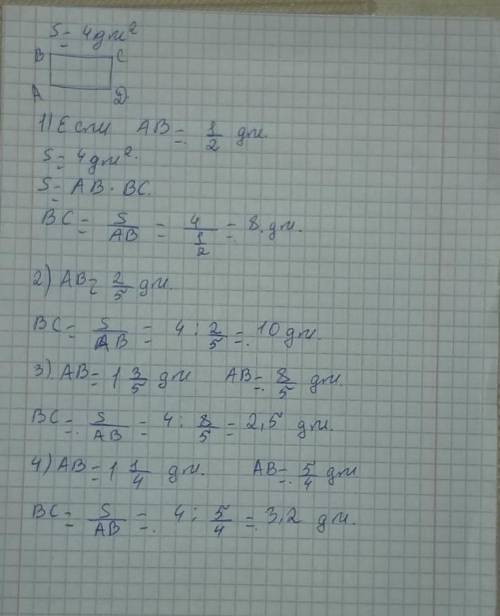 S = 4 дм²
B C
A D
1) Если AB = 1/2 дм.
S = 4 дм².
S = AB · BC.
BC = S/AB = 4/(1/2) = 8 дм.
2) AB = 2/5 дм.
BC = S/AB = 4 : 2/5 = 10 дм.
3) AB = 1 3/5 дм AB = 8/5 дм.
BC = S/AB = 4 : 8/5 = 2,5 дм.
4) AB = 1 1/4 дм. AB = 5/4 дм
BC = S/AB = 4 : 5/4 = 3,2 дм.